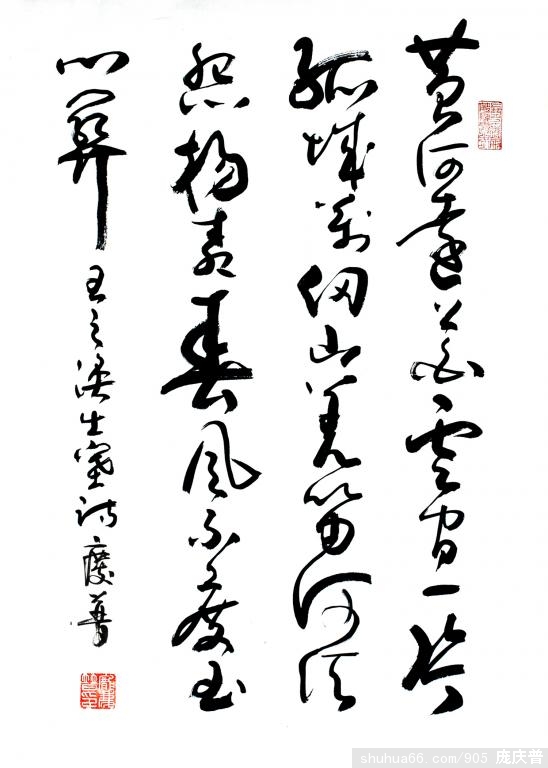 黄河遠上白雲间一片
孤城萬仞山羌笛何须
怨楊柳春風不度玉
门関 王之渙出塞诗 慶普
shuhua66.com/905 庞庆普